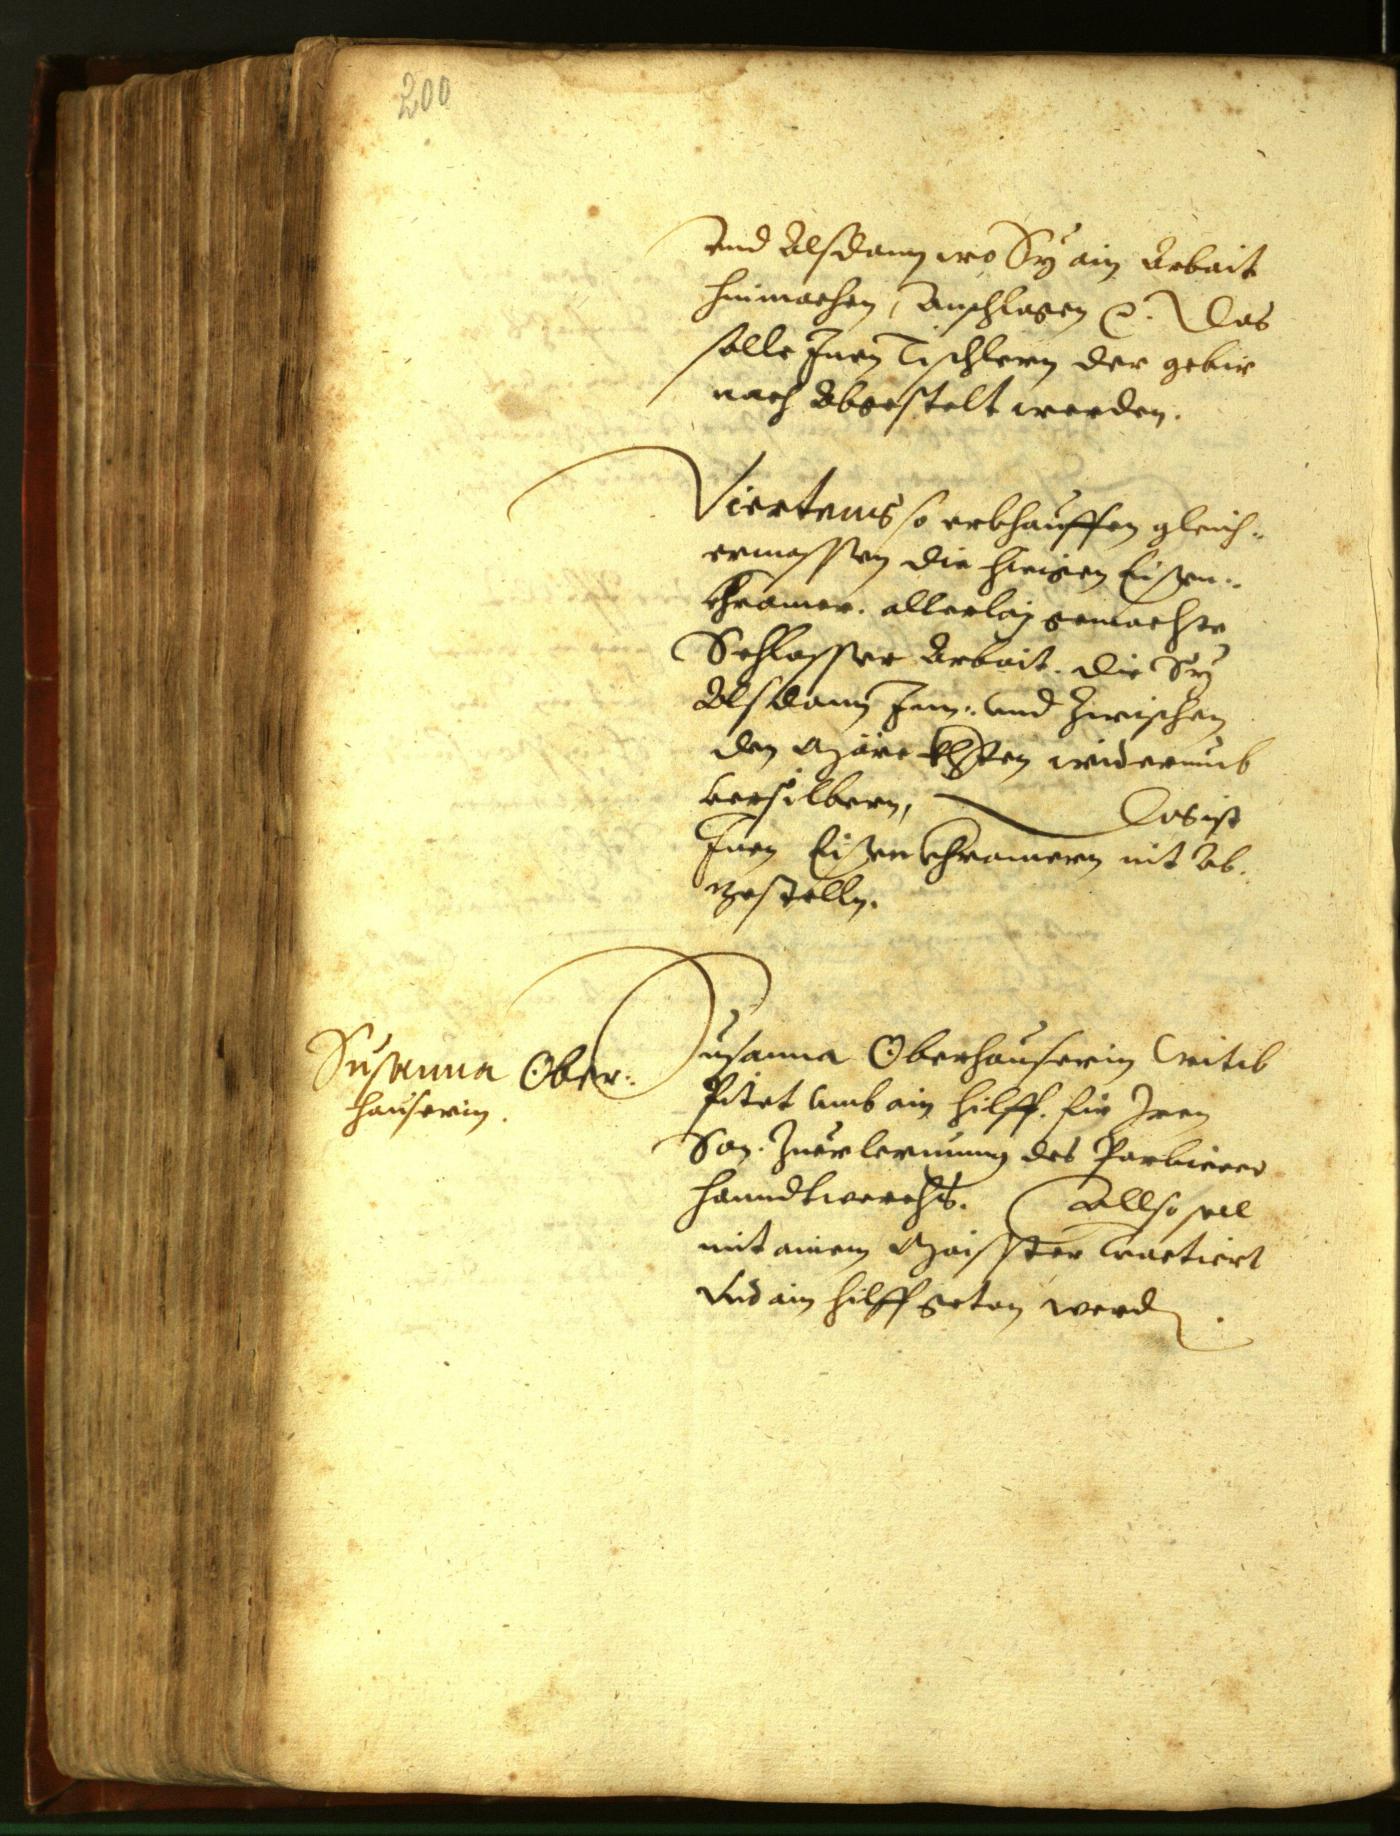 200
vnd Alsdann wo Sy ain Arbait
hinmachen, Anschlagen &c. Das
solle Inen Tischlern der gebir
nach Abgestelt werden.
Viertens so erkhauffen gleich-
ermassen die hiesigen Eisen-
Chramer. allerlaj gemachte
Schlosser Arbait. die Sy
Alsdann Inn- und Zwischen
den Märckhten widerumb
versilbern, Das ist
Inen Eisen Chramern nit Ab-
zestelln.
Susanna Ober-
hauserin.
Susanna Oberhauserin Witib
Pitet umb ain hilff. für Iren
Son. Zuerlernung des Parbierer
hanndtwerchs. Allso soll
mit ainem Maister Tractiert
vnd ain hilff geton werd